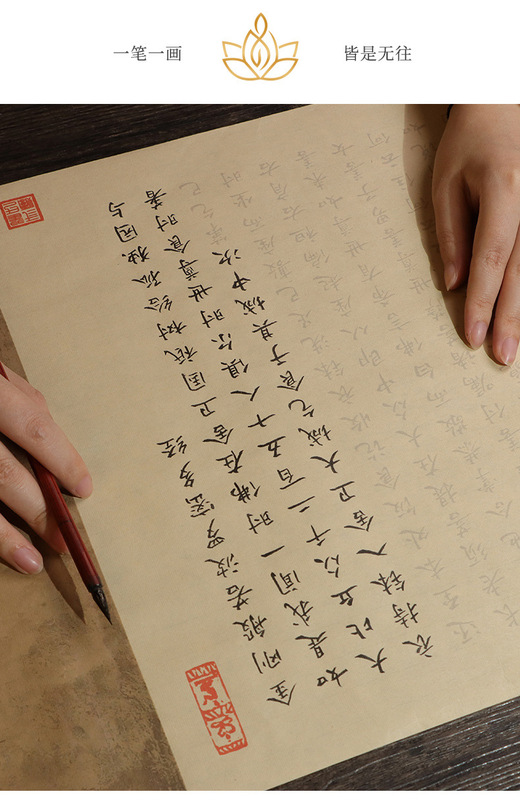 一笔一画
皆是无往
金刚般若波罗蜜多经
如是我闻一时佛在舍卫国祇树给孤独园与
大比丘众千二百五十人俱尔时世尊食时着
衣持钵入舍卫大城乞食于其城中次第乞已
还至本处饭食讫收衣钵洗足已敷座而坐时
长老须菩提在大众中即从座起偏袒右肩右